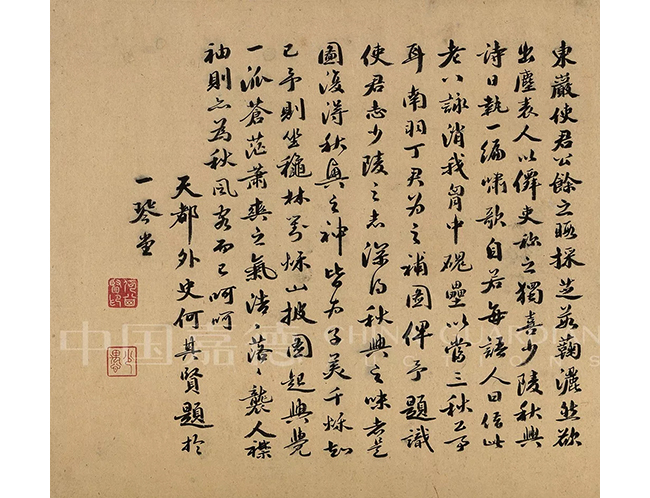 東巖使君公餘之暇採芝茹蘜灑然欲
出塵表人以僊吏称之獨喜少陵秋興
詩日執一編嘯歌自若每語人曰借此
老八詠消我胷中磈壘以當三秋
耳南羽丁君为之補圖俾予題識
使君志少陵之志深得秋興之味者是
圖復得秋興之神皆为子美千秌知
己予則坐穐林茅秌山披圖起興覺
一派蒼茫蕭爽之氣浩浩落落襲人襟
袖則亦為秋風客而已呵呵
天都外史何其賢題於
一琴堂
中国嘉德
CHINA GUARDIAN
AUCTIONS